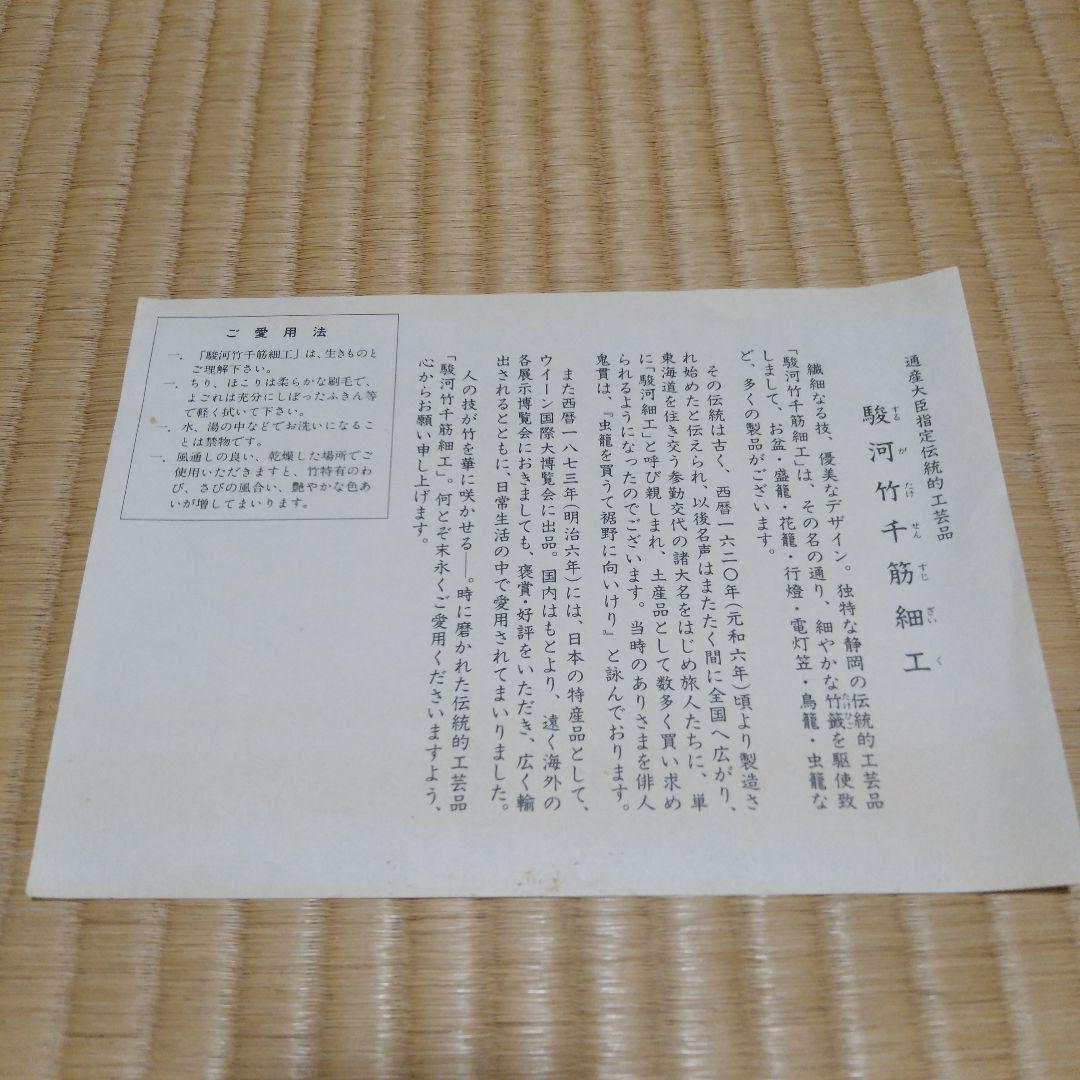 通産大臣指定伝統的工芸品
駿河竹千筋細工
するがたけせんすじざいく
繊細なる技、優美なデザイン。独特な静岡の伝統的工芸品
「駿河竹千筋細工」は、その名の通り、細やかな竹籤を駆使致
たけひご
しまして、お盆・盛籠・花籠・行燈・電灯笠・鳥籠・虫籠な
ど、多くの製品がございます。
その伝統は古く、西暦一六二〇年(元和六年)頃より製造さ
れ始めたと伝えられ、以後名声はまたたく間に全国へ広がり、
東海道を住き交う参勤交代の諸大名をはじめ旅人たちに、単
に「駿河細工」と呼び親しまれ、土産品として数多く買い求め
られるようになったのでございます。当時のありさまを俳人
鬼貫は、『虫籠を買うて裾野に向いけり』と詠んでおります。
また西暦一八七三年(明治六年)には、日本の特産品として、
ウイーン国際大博覧会に出品。国内はもとより、遠く海外の
各展示博覧会におきましても、褒賞・好評をいただき、広く輸
出されるとともに、日常生活の中で愛用されてまいりました。
人の技が竹を華に咲かせる――。時に磨かれた伝統的工芸品
「駿河竹千筋細工」。何とぞ末永くご愛用くださいますよう、
心からお願い申し上げます。
ご愛用法
一、「駿河竹千筋細工」は、生きものと
ご理解下さい。
一、ちり、ほこりは柔らかな刷毛で、
よごれは充分にしぼったふきん等
で軽く拭いて下さい。
一、水、湯の中などでお洗いになるこ
とは禁物です。
一、風通しの良い、乾燥した場所でご
使用いただきますと、竹特有のわ
び、さびの風合い、艶やかな色あ
いが増してまいります。